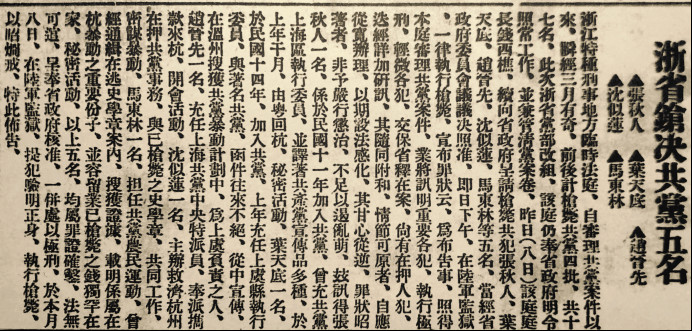 浙省鎗決共黨五名
▲張秋人 ▲葉天底 ▲趙晉先
▲沈似蓮 ▲馬東林
浙江特種刑事地方臨時法庭、自審理共黨案件以
來、瞬經三月有奇、前後計槍斃共黨四批、共十
七名、此次浙省黨部改組、該庭仍奉省政府明令
照常工作、並兼管清黨案卷、昨日(八日)該庭庭
長錢西樵、續向省政府呈請槍斃共犯張秋人、葉
天底、趙晉先、沈似蓮、馬東林等五名、當經省
政府委員會議議決照准、即日下午、在陸軍監獄
、一律執行槍斃、宣布罪狀云、爲布告事、照得
本庭審理共黨案件、業將訊明重要各犯、執行極
刑、輕微各犯、交保省釋在案、尚有在押人犯
迭經詳加研訊、其隨同附和、情節可原者、自應
從寬辦理、以期設法感化、其甘心從逆、罪狀昭
著者、非予嚴行懲治、不足以遏亂萌、茲訊得張
秋人一名、係於民國十一年加入共黨、曾充共黨
上海區執行委員、並譯著共產黨宣傳品多種、於
上年十月、由粵回杭、秘密活動、葉天底一名、
於民國十四年、加入共黨、上年充任上虞縣執行
委員、與著名共黨、函件往來不絕、從中宣傳、
在溫州搜獲共黨暴動計劃中、爲上虞負責之人、
趙晉先一名、充任上海共黨中央特派員、奉派携
款來杭、開會活動、沈似蓮一名、主辦救濟杭州
在押共黨事務、與已槍斃之史學章、共同工作、
密謀暴動、馬東林一名、担任共黨農民運動、曾
經通緝在逃史學章案內、搜獲證據、載明係屬在
杭暴動之重要份子、並容留業已槍斃之錢獨罕在
家、秘密活動、以上五名、均屬罪證確鑿、法無
可逭、呈奉省政府核准、一併處以極刑、於本月
八日、在陸軍監獄、提犯驗明正身、執行槍斃、
以昭炯戒、特此佈告、